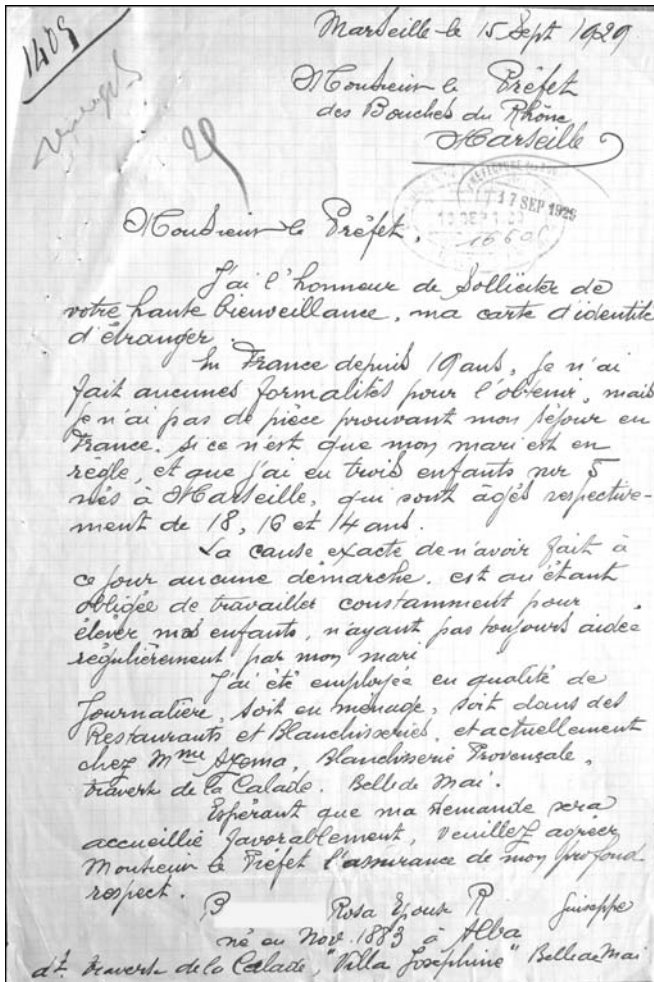 1409
Marseille le 15 Sept 1929
Monsieur le Préfet
des Bouches du Rhône
Marseille
17 SEP 1929
Monsieur le Préfet,
J'ai l'honneur de Solliciter de
votre haute bienveillance, ma carte d'identité
d'étranger.
En France depuis 19 ans, je n'ai
fait aucunes formalités pour l'obtenir, mais
je n'ai pas de pièce prouvant mon séjour en
France. si ce n'est que mon mari est en
regle, et que j'ai eu trois enfants sur 5
nés à Marseille, qui sont âgés respective-
ment de 18, 16 et 14 ans.
La cause exacte de n'avoir fait à
ce jour aucune démarche. est au étant
obligée de travailler constamment pour
élever mes enfants, n'ayant pas toujours aidée
régulièrement par mon mari
J'ai été employée en qualité de
Journalière, soit en ménage, soit dans des
Restaurants et Blanchisseries, et actuellement
chez Mme Azema, Blanchisserie Provençale,
travers de la Calade. Belle de Mai.
Espérant que ma demande sera
accueillie favorablement, veuillez agréer
Monsieur le Préfet l'assurance de mon profond
respect.
B Rosa Epouse R Guiseppe
né en Nov. 1883 à Alba
dt. travers de la Calade, "Villa Joséphine" Belle de Mai